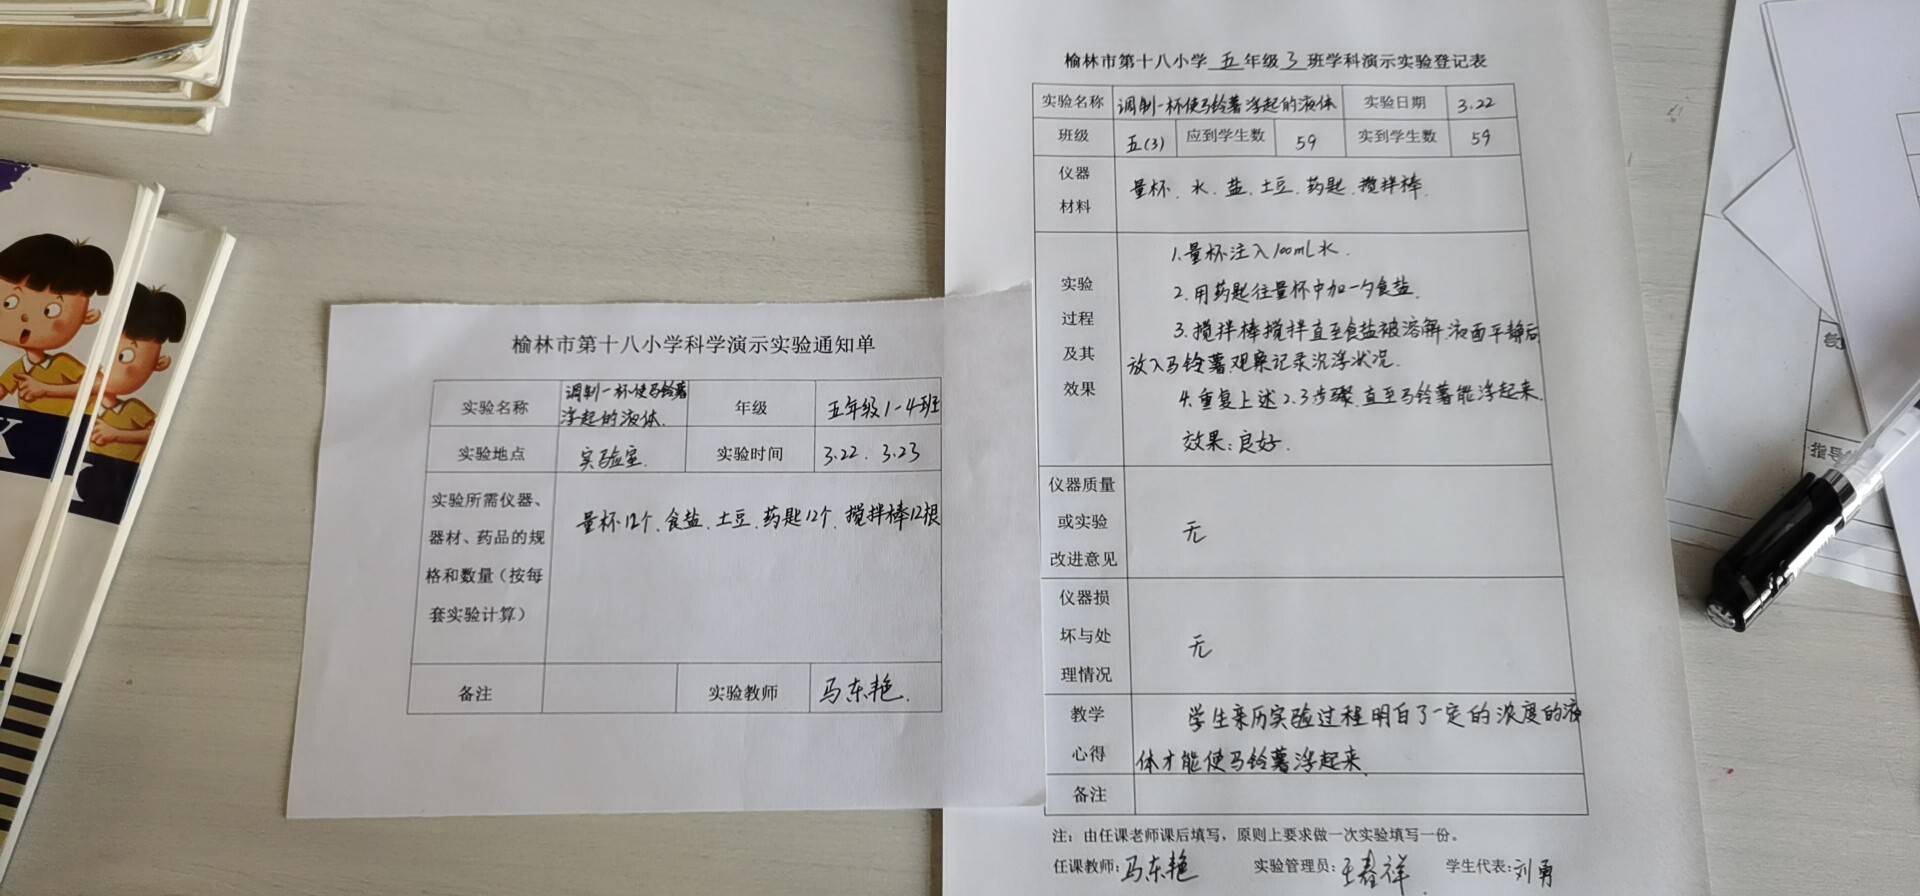 榆林市第十八小学科学演示实验通知单
实验名称 调制一杯使马铃薯浮起的液体. 年级 五年级1-4班
实验地点 实验室. 实验时间 3.22. 3.23
实验所需仪器、器材、药品的规格和数量（按每套实验计算） 量杯12个.食盐.土豆.药匙12个.搅拌棒12根
备注 实验教师 马东艳.
榆林市第十八小学 五 年级 3 班学科演示实验登记表
实验名称 调制一杯使马铃薯浮起的液体 实验日期 3.22
班级 五(3) 应到学生数 59 实到学生数 59
仪器材料 量杯.水.盐.土豆.药匙.搅拌棒.
实验过程及其效果
1.量杯注入100mL水.
2.用药匙往量杯中加一勺食盐.
3.搅拌棒搅拌直至食盐被溶解.液面平静后
放入马铃薯观察记录沉浮状况.
4.重复上述2.3步骤.直至马铃薯能浮起来.
效果:良好.
仪器质量或实验改进意见 无
仪器损坏与处理情况 无
教学心得 学生亲历实验过程明白了一定的浓度的液
体才能使马铃薯浮起来.
备注
注：由任课老师课后填写，原则上要求做一次实验填写一份。
任课教师:马东艳 实验管理员:王春祥. 学生代表:刘勇
指导
K